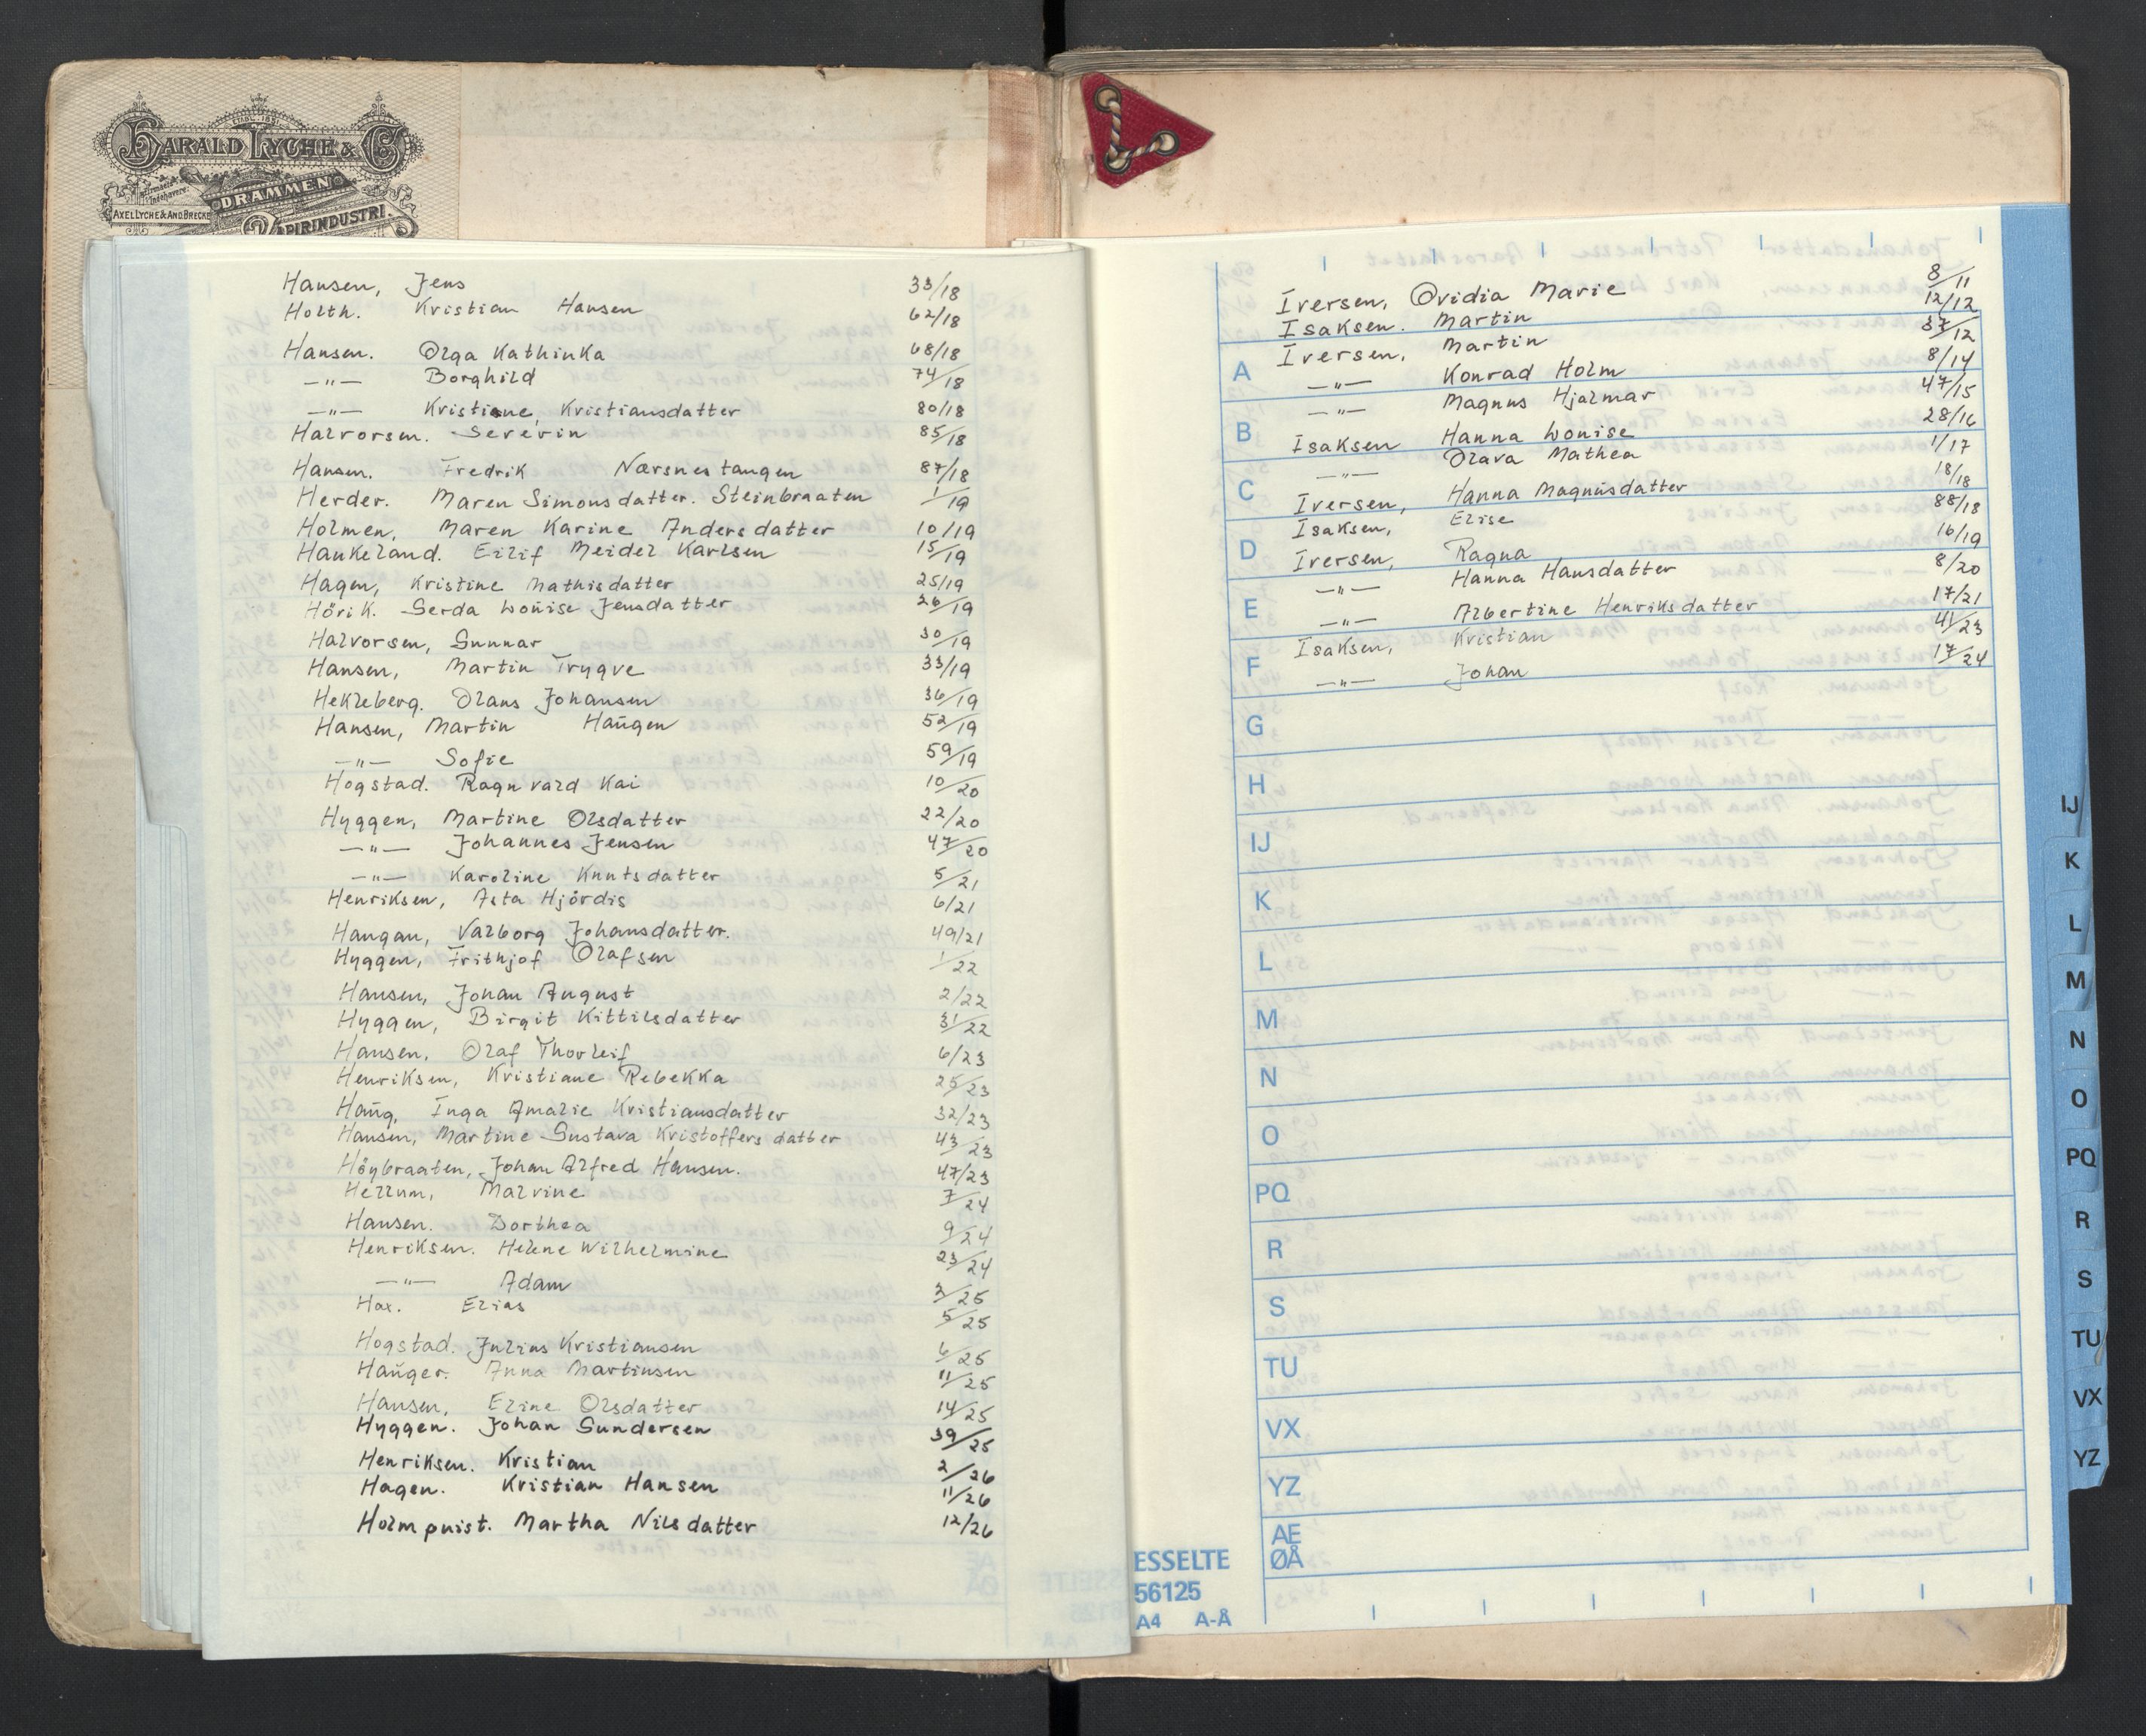 ETABL. 1891
HARALD LYCHE & Co
Firmaets Indehavere:
AXEL LYCHE & AND. BRECKE
DRAMMEN
PAPIRINDUSTRI.
Hansen, Jens 33/18
Holth. Kristian Hansen 62/18
Hansen. Olga Kathinka 68/18
—"— Borghild 74/18
—"— Kristiane, Kristiansdatter 80/18
Halvorsen. Severin 85/18
Hansen. Fredrik Nærsnestangen 87/18
Herder. Maren Simonsdatter. Steinbraaten 1/19
Holmen, Maren Karine Andersdatter 10/19
Haukeland. Eilif Meidel Karlsen 15/19
Hagen, Kristine Mathisdatter 25/19
Hörik. Gerda Louise Jensdatter 26/19
Halvorsen, Gunnar 30/19
Hansen, Martin Trygve 33/19
Hekleberg. Olaus Johansen 36/19
Hansen, Martin Haugen 52/19
—"— Sofie 59/19
Hogstad. Ragnvald Kai 10/20
Hyggen, Martine Olsdatter 22/20
—"— Johannes Jensen 47/20
—"— Karoline Knutsdatter 5/21
Henriksen, Asta Hjördis 6/21
Haugan, Valborg Johansdatter. 49/21
Hyggen, Frithjof Olafsen 1/22
Hansen, Johan August 2/22
Hyggen, Birgit Kittilsdatter 31/22
Hansen. Olaf Thorleif 6/23
Henriksen, Kristiane Rebekka 25/23
Haug, Inga Amalie Kristiansdatter 32/23
Hansen, Martine Gustava Kristoffersdatter 43/23
Höybraaten, Johan Alfred Hansen. 47/23
Hellum, Malvine 7/24
Hansen. Dorthea 9/24
Henriksen. Helene Wilhelmine 23/24
—"— Adam 3/25
Hax. Elias 5/25
Hogstad. Julius Kristiansen 6/25
Hauger. Anna Martinsen 11/25
Hansen, Eline Olsdatter 14/25
Hyggen. Johan Gundersen 39/25
Henriksen. Kristian 2/26
Hagen. Kristian Hansen 11/26
Holmquist. Martha Nilsdatter 12/26
Iversen, Ovidia Marie 8/11
Isaksen. Martin 12/12
Iversen, Martin 37/12
—"— Konrad Holm 8/14
—"— Magnus Hjalmar 47/15
Isaksen Hanna Louise 28/16
—"— Olava Mathea 1/17
Iversen, Hanna Magnusdatter 18/18
Isaksen, Elise 88/18
Iversen, Ragna 16/19
—"— Hanna Hansdatter 8/20
—"— Albertine Henriksdatter 17/21
Isaksen, Kristian 41/23
—"— Johan 17/24
A
B
C
D
E
F
G
H
IJ
K
L
M
N
O
PQ
R
S
TU
VX
YZ
AE
ØÅ
ESSELTE
56125
A4 A-Å
IJ
K
L
M
N
O
PQ
R
S
TU
VX
YZ